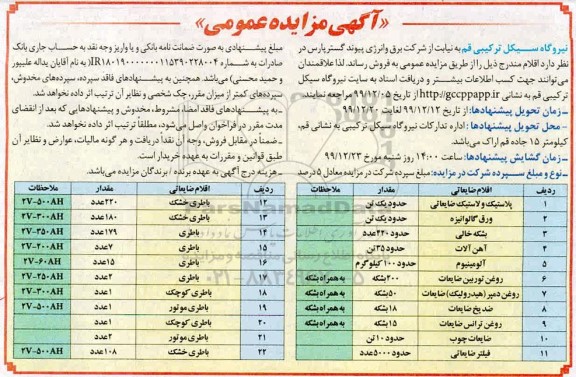 «آگهی مزایده عمومی»
نیروگاه سیکل ترکیبی قم به نیابت از شرکت برق و انرژی پیوند گستر پارس در
نظر دارد اقلام مندرج ذیل را از طریق مزایده عمومی به فروش رساند. لذا علاقمندان
می‌توانند جهت کسب اطلاعات بیشتر و دریافت اسناد به سایت نیروگاه سیکل
ترکیبی قم به نشانی http://gccppapp.ir از تاریخ ۹۹/۱۲/۰۵ مراجعه نمایند.
ـ زمان تحویل پیشنهادها: از تاریخ ۹۹/۱۲/۱۲ لغایت ۹۹/۱۲/۲۰
ـ محل تحویل پیشنهادها: اداره تدارکات نیروگاه سیکل ترکیبی به نشانی قم،
کیلومتر ۱۵ جاده قم اراک می‌باشد.
ـ زمان گشایش پیشنهادها: ساعت ۱۴:۰۰ روز شنبه مورخ ۹۹/۱۲/۲۳
ـ نوع و مبلغ سپرده شرکت در مزایده: مبلغ سپرده شرکت در مزایده معادل ۵ درصد
مبلغ پیشنهادی به صورت ضمانت نامه بانکی و یا واریز وجه نقد به حساب جاری بانک
صادرات به شماره IR۱۸۰۱۹۰۰۰۰۰۰۰۱۱۵۳۹۰۲۲۸۰۰۴ (به نام آقایان یداله علیپور
و حمید محسنی) می‌باشد. همچنین به پیشنهادهای فاقد سپرده، سپرده‌های مخدوش،
سپرده‌های کمتر از میزان مقرر، چک شخصی و نظایر آن ترتیب اثر داده نخواهد شد.
ـ به پیشنهادهای فاقد امضا، مشروط، مخدوش و پیشنهادهایی که بعد از انقضای
مدت مقرر در فراخوان واصل می‌شود، مطلقا ترتیب اثر داده نخواهد شد.
ـ ضمناً در مقابل فروش، وجه آن نقداً دریافت و هر گونه مالیات، عوارض و نظایر آن
طبق قوانین و مقررات به عهده خریدار است.
ـ هزینه درج آگهی به عهده برنده / برندگان مزایده می‌باشد.
ردیف اقلام ضایعاتی مقدار ملاحظات
۱ پلاستیک و لاستیک ضایعاتی حدود یک تن
۲ ورق گالوانیزه حدود یک تن
۳ بشکه خالی حدود ۴۲۰ عدد
۴ آهن آلات حدود ۳۵ تن
۵ آلومینیوم حدود ۱۰۰ کیلوگرم
۶ روغن توربین ضایعات ۲۰۰ بشکه به همراه بشکه
۷ روغن دمپر (هیدرولیک) ضایعات ۵۰ بشکه به همراه بشکه
۸ ضدیخ ضایعات ۱۸ بشکه به همراه بشکه
۹ روغن ترانس ضایعات ۱۵ بشکه به همراه بشکه
۱۰ ضایعات چوب حدود ۱۰ تن
۱۱ فیلتر ضایعاتی حدود ۵۰۰۰ عدد
ردیف اقلام ضایعاتی مقدار ملاحظات
۱۲ باطری خشک ۲۲۰ عدد ۲V-۵۰۰AH
۱۳ باطری خشک ۱۸۰ عدد ۲V-۳۰۰AH
۱۴ باطری ۱۷۹ عدد ۲V-۳۵۰AH
۱۵ باطری ۷ عدد ۲V-۲۰۰AH
۱۶ باطری ۱۵ عدد ۲V-۶۰AH
۱۷ باطری ۲ عدد ۲V-۲۵۰AH
۱۸ باطری کوچک ۱ عدد ۲V-۳۰۰AH
۱۹ باطری موتور ۱ عدد ۲V-۵۰۰AH
۲۰ باطری کوچک ۱ عدد
۲۱ باطری موتور ۲ عدد
۲۲ باطری خشک ۱۰۸ عدد ۲V-۵۰۰AH